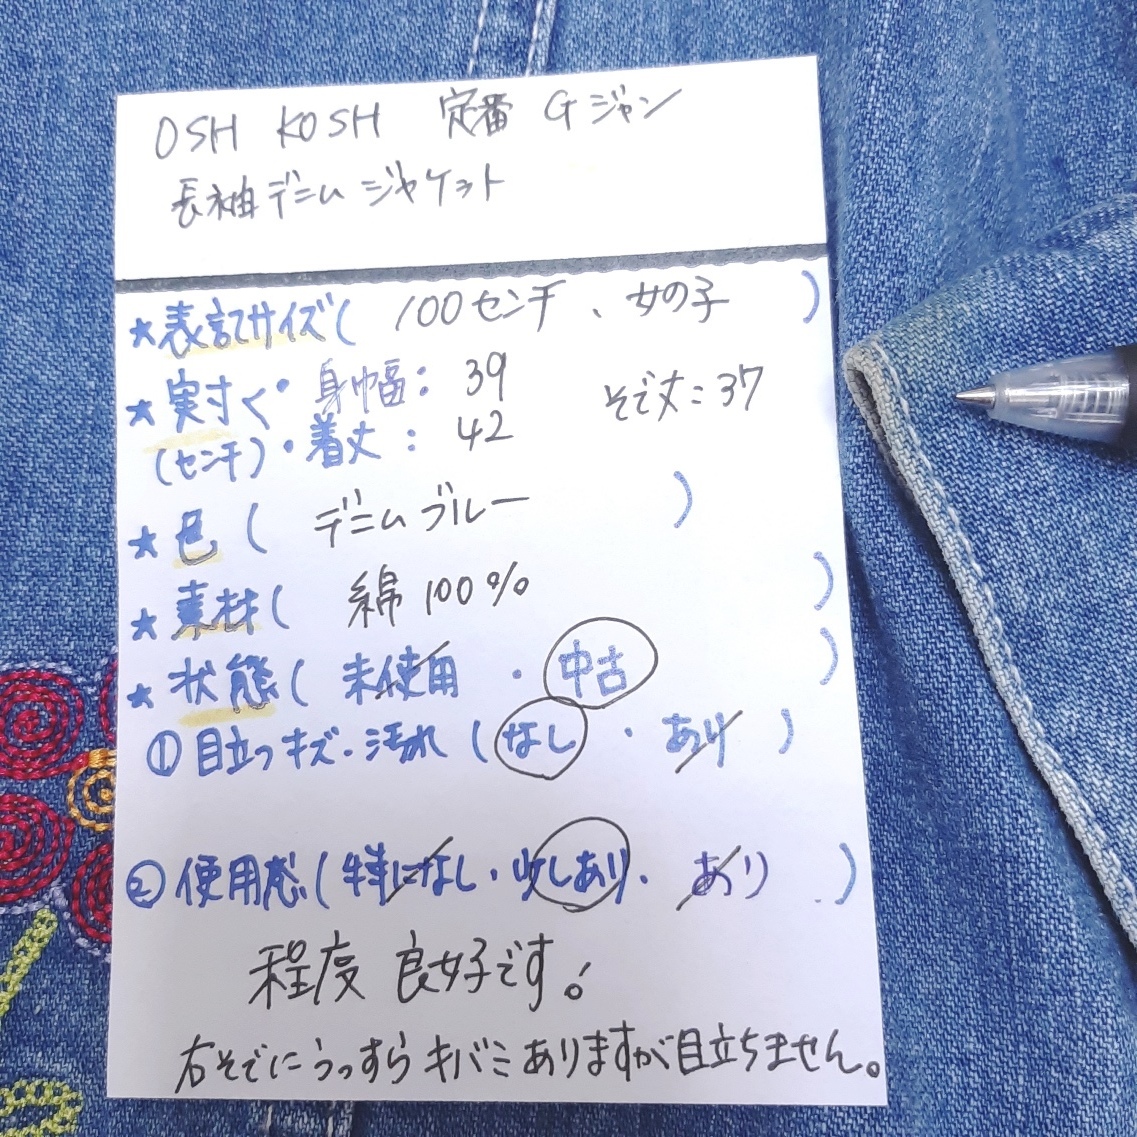 OSH KOSH 定番 Gジャン
長袖デニムジャケット
★表記サイズ( 100センチ、女の子 )
★実寸く・身幅: 39 そで丈: 37
(センチ)・着丈: 42
★色( デニムブルー )
★素材( 綿100% )
★状態( 未使用 ・ 中古 )
①目立つキズ・汚れ(なし ・ あり )
②使用感(特になし・少しあり・ あり )
程度良好です!
右そでにうっすらキバミありますが目立ちません。